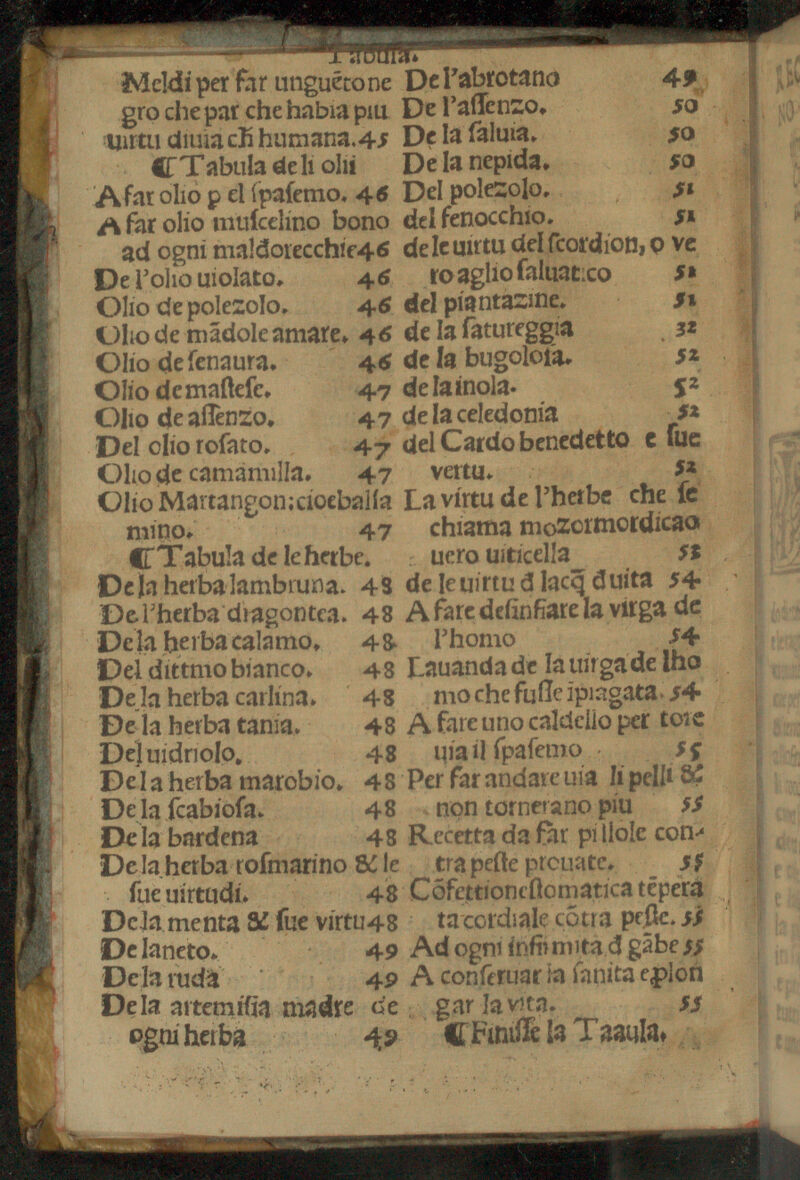 Tabula.
Meldi per far unguẽto ne
gro che par che habia piu
uirtu diuia ch humana. 45
☾ Tabula de li olii
A far olio p el ſpaſemo. 46
A far olio muſcelino bono
ad ogni mal dorecchie 46
De l'olio uiolato. 46
Olio de polezolo. 46
Olio de mãdole amare. 46
Olio de ſenaura. 46
Olio de maſteſe. 47
Olio de aſſenzo. 47
Del olio roſato. 47
Olio de camamilla. 47
Olio Martangon: cioe balſa
mino. 47
☾ Tabula de le herbe.
De la herba lambruna. 48
De l'herba dragontea. 48
De la herba calamo. 48
Del dittmo bianco. 48
De la herba carlina. 48
De la herba tania. 48
Del uidriolo. 48
De la herba marobio. 48
De la ſcabioſa. 48
De la bardena 48
De la herba roſmarino & le
ſue uirtudi. 48
De la menta & ſue virtu 48
De laneto. 49
De la ruda 49
De la artemiſia madre de
ogni herba 49
De l'abrotano 49
De l'aſſenzo. 50
De la ſaluia. 50
De la nepida. 50
Del polezolo. 51
del fenocchio. 51
de le uirtu del ſcordion, o ve
ro aglio ſaluatico 51
del piantazine. 51
de la ſatureggia 32
de la bugoloſa. 52
de la inola. 52
de la celedonia 52
del Cardo benedetto e ſue
vertu. 52
La virtu de l'herbe che ſe
chiama mozormordicao
uero uiticella 53
de le uirtu d lacq̃ duita 54
A fare definfiare la virga de
l'homo 54
Lauanda de la uirga de lho
mo che fuſſe ipiagata. 54
A fare uno caldello per tore
uia il ſpaſemo 55
Per far andare uia li pelli &
non tornerano piu 55
Recetta da far pillole con-
tra peſte prouate. 55
Cõfettione ſtomatica tẽpera
ta cordiale cõtra peſte. 55
Ad ogni infirmita d gãbe 55
A conſeruar la ſanita e plon
gar la vita. 55
☾ Finiſſe la Taaula.